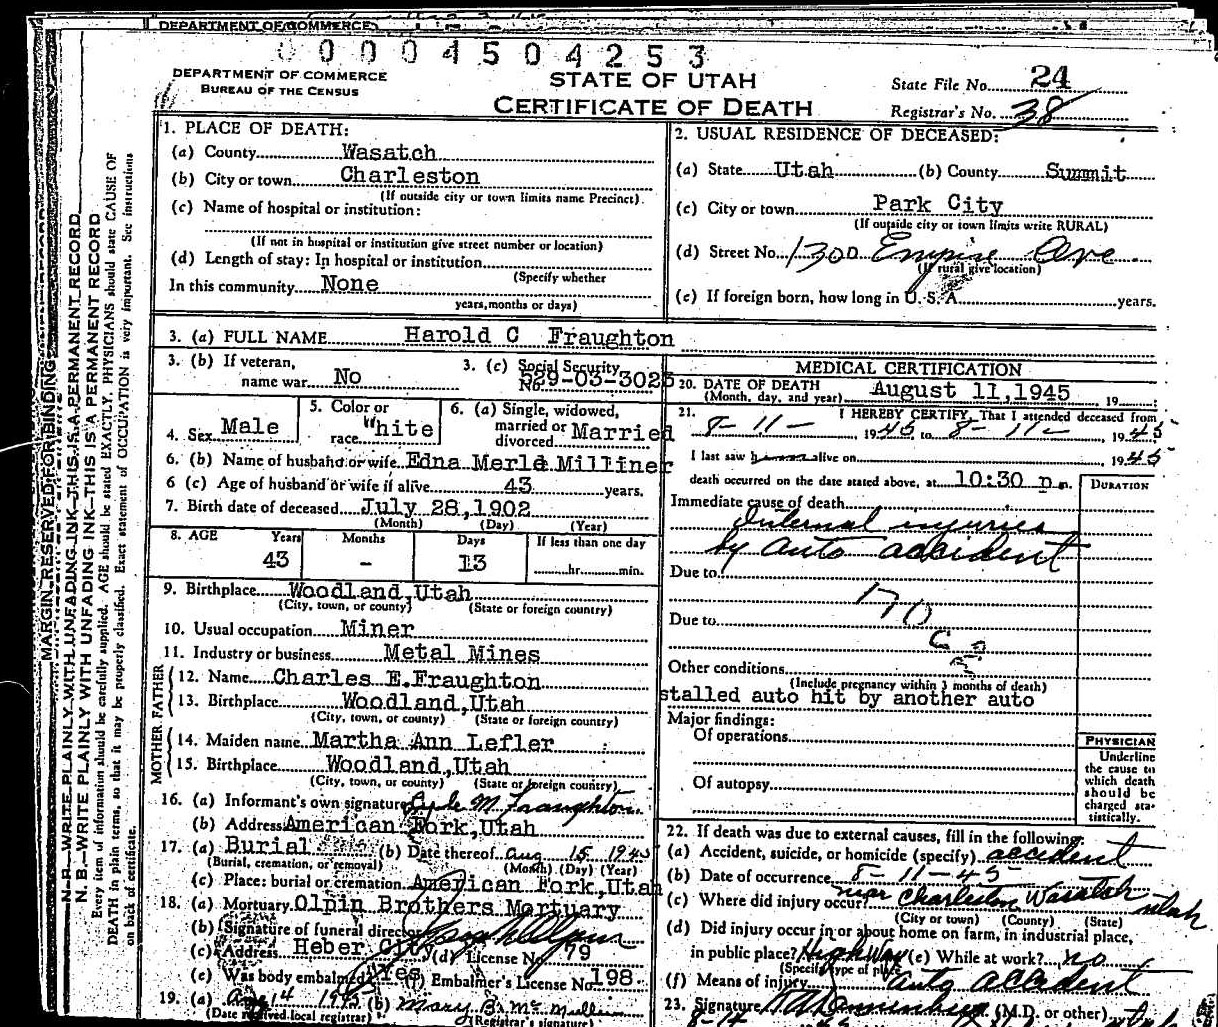 DEPARTMENT OF COMMERCE
0 0 0 0 4 5 0 4 2 5 3
DEPARTMENT OF COMMERCE
BUREAU OF THE CENSUS
STATE OF UTAH
CERTIFICATE OF DEATH
State File No. 24
Registrar's No. 38
MARGIN RESERVED FOR BINDING
N. B.—WRITE PLAINLY WITH UNFADING INK—THIS IS A PERMANENT RECORD
N. B.—WRITE PLAINLY WITH UNFADING INK—THIS IS A PERMANENT RECORD
Every item of information should be carefully supplied. AGE should be stated EXACTLY. PHYSICIANS should state CAUSE OF
DEATH in plain terms, so that it may be properly classified. Exact statement of OCCUPATION is very important. See instructions
on back of certificate.
1. PLACE OF DEATH:
(a) County Wasatch
(b) City or town Charleston
(If outside city or town limits name Precinct)
(c) Name of hospital or institution:
(If not in hospital or institution give street number or location)
(d) Length of stay: In hospital or institution
(Specify whether
In this community None
years, months or days)
2. USUAL RESIDENCE OF DECEASED:
(a) State Utah (b) County Summit
(c) City or town Park City
(If outside city or town limits write RURAL)
(d) Street No. 1300 Empire Ave.
(If rural give location)
(e) If foreign born, how long in U. S. A. years.
3. (a) FULL NAME Harold C Fraughton
3. (b) If veteran,
name war No
3. (c) Social Security
No. 529-03-3025
4. Sex Male
5. Color or
race White
6. (a) Single, widowed,
married or
divorced Married
6. (b) Name of husband or wife Edna Merle Milliner
6 (c) Age of husband or wife if alive 43 years.
7. Birth date of deceased July 28,1902
(Month) (Day) (Year)
8. AGE Years Months Days If less than one day
43 - 13 hr. min.
9. Birthplace Woodland,Utah
(City, town, or county) (State or foreign country)
10. Usual occupation Miner
11. Industry or business Metal Mines
FATHER
12. Name Charles E.Fraughton
13. Birthplace Woodland,Utah
(City, town, or county) (State or foreign country)
MOTHER
14. Maiden name Martha Ann Lefler
15. Birthplace Woodland,Utah
(City, town, or county) (State or foreign country)
16. (a) Informant's own signature M Fraughton
(b) Address American Fork,Utah
17. (a) Burial (b) Date thereof Aug 15 1945
(Burial, cremation, or removal) (Month) (Day) (Year)
(c) Place: burial or cremation American Fork,Utah
18. (a) Mortuary Olpin Brothers Mortuary
(b) Signature of funeral director
(c) Address Heber City (d) License No. 79
(e) Was body embalmed Yes (f) Embalmer's License No. 198
19. (a) Aug 14 1945 (b) Mary
(Date received local registrar) (Registrar's signature)
MEDICAL CERTIFICATION
20. DATE OF DEATH August 11,1945 19
(Month, day, and year)
21. I HEREBY CERTIFY, That I attended deceased from
8-11- 1945 to 8-11- 1945
I last saw him alive on 1945
death occurred on the date stated above, at 10:30 p.m.
DURATION
Immediate cause of death
Internal injuries
by auto accident
Due to
170
Due to
Other conditions
(Include pregnancy within 3 months of death)
stalled auto hit by another auto
Major findings:
Of operations
Of autopsy
PHYSICIAN
Underline
the cause to
which death
should be
charged sta-
tistically.
22. If death was due to external causes, fill in the following:
(a) Accident, suicide, or homicide (specify) accident
(b) Date of occurrence 8-11-45
(c) Where did injury occur? near Charleston Wasatch Utah
(City or town) (County) (State)
(d) Did injury occur in or about home on farm, in industrial place,
in public place? Highway (e) While at work? no
(Specify type of place)
(f) Means of injury Auto accident
23. Signature (M.D. or other)
8-14